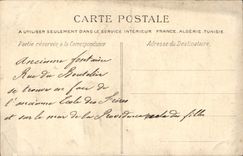 CARTE POSTALE
A UTILISER SEULEMENT DANS LE SERVICE INTÉRIEUR FRANCE, ALGÉRIE, TUNISIE.
Partie réservée à la Correspondance
Adresse du Destinataire.
Ancienne fontaine
Rue du
se trouve en face de
l'ancienne Ecole des Frères
et sur le mur de la Providence école de filles